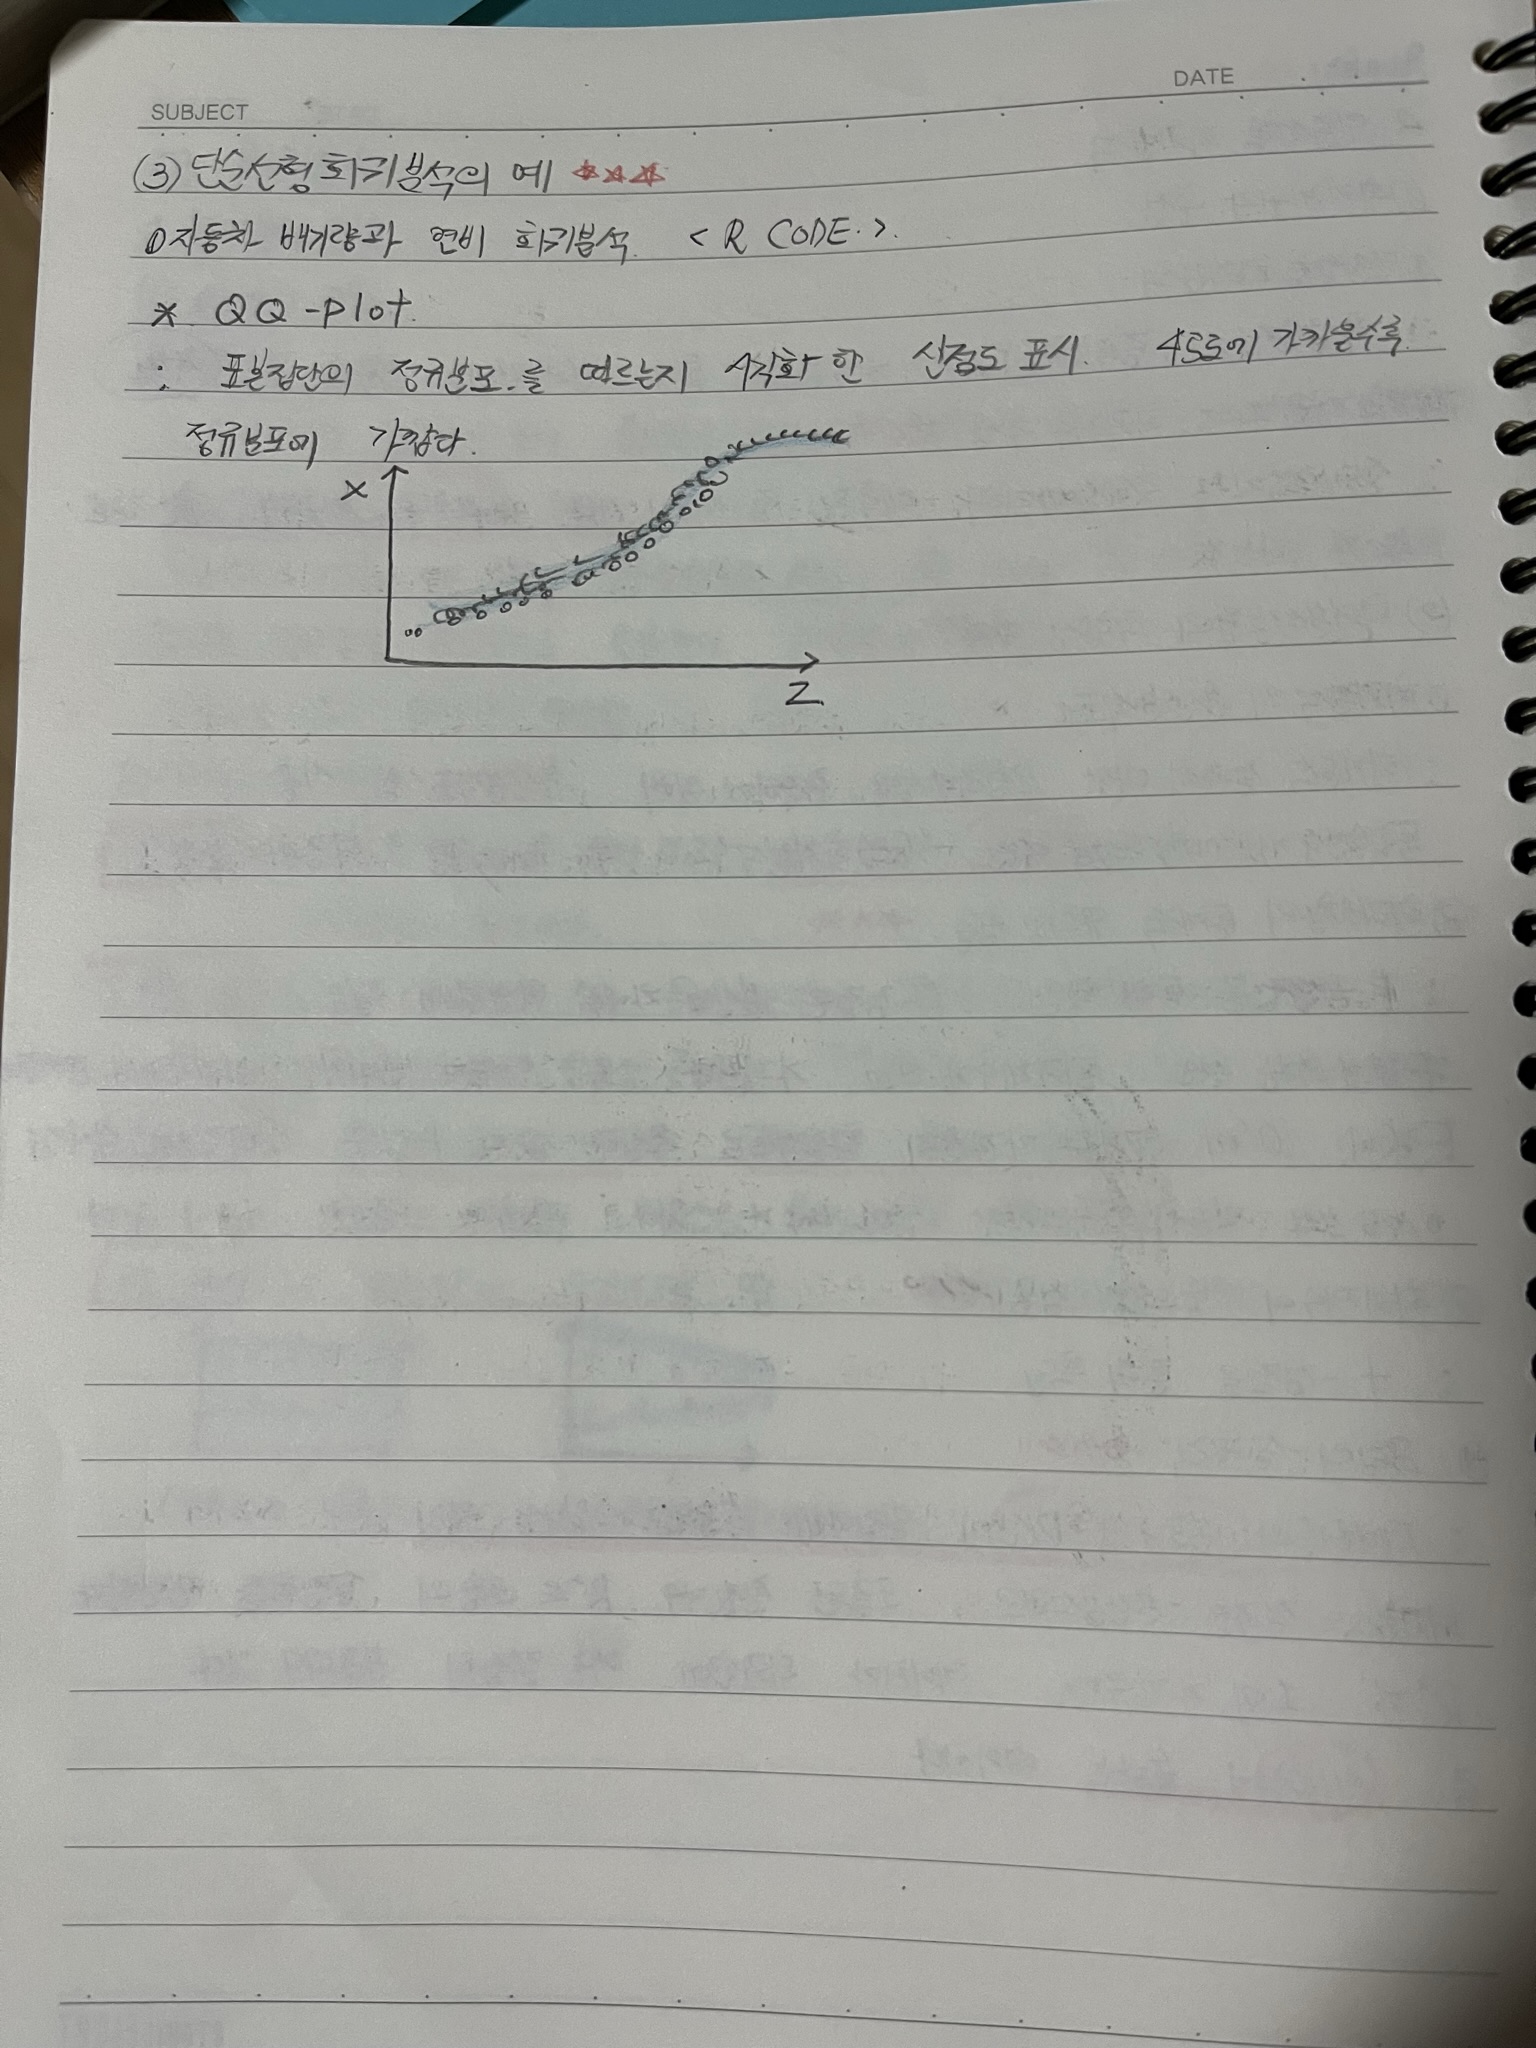 SUBJECT
DATE
(3) 단순선형회귀분석의 예 ★★★
0 자동차 배기량과 연비 회귀분석. < R CODE. >.
* QQ-plot.
: 표본집단의 정규분포.를 따르는지 시각화 한 산점도 표시. 45도에 가까울수록
정규분포에 가깝다.
X
Z.